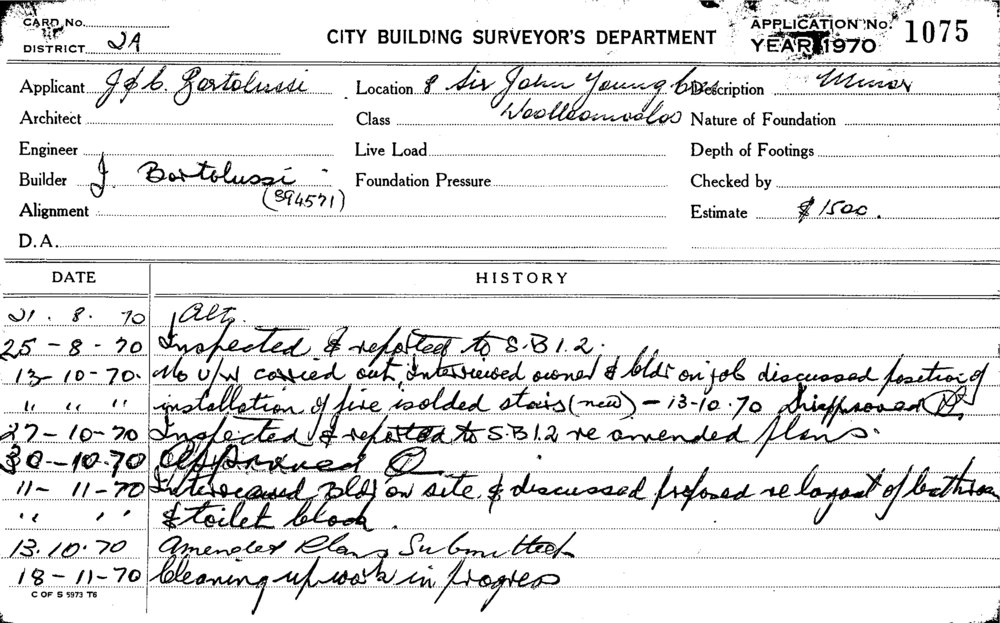 CARD No.
APPLICATION No. 1075
DISTRICT 2A
CITY BUILDING SURVEYOR'S DEPARTMENT
YEAR 1970
Applicant J & C. Bortolussi
Location 8 Sir John Young Cres
Description Minor
Architect
Class Woolloomooloo
Nature of Foundation
Engineer
Live Load
Depth of Footings
Builder J. Bortolussi
(394571)
Foundation Pressure
Checked by
Alignment
Estimate $1500.
D.A.
DATE HISTORY
21. 8. 70 Alts.
25-8-70 Inspected & reported to S.B.I.2.
13-10-70. No U/W carried out, Interviewed owner & bldr on job discussed position of
" " " installation of fire isolded stairs (new) - 13-10.70 Disapproved
27-10-70 Inspected & reported to S.B.I.2 re amended plans.
30-10.70 Approved
11-11-70 Interviewed Bldr on site & discussed proposed re layout of bathroom
" " & toilet block.
13.10.70 Amended Plans Submitted
18-11-70 Cleaning up work in progress
C OF S 5973 T6